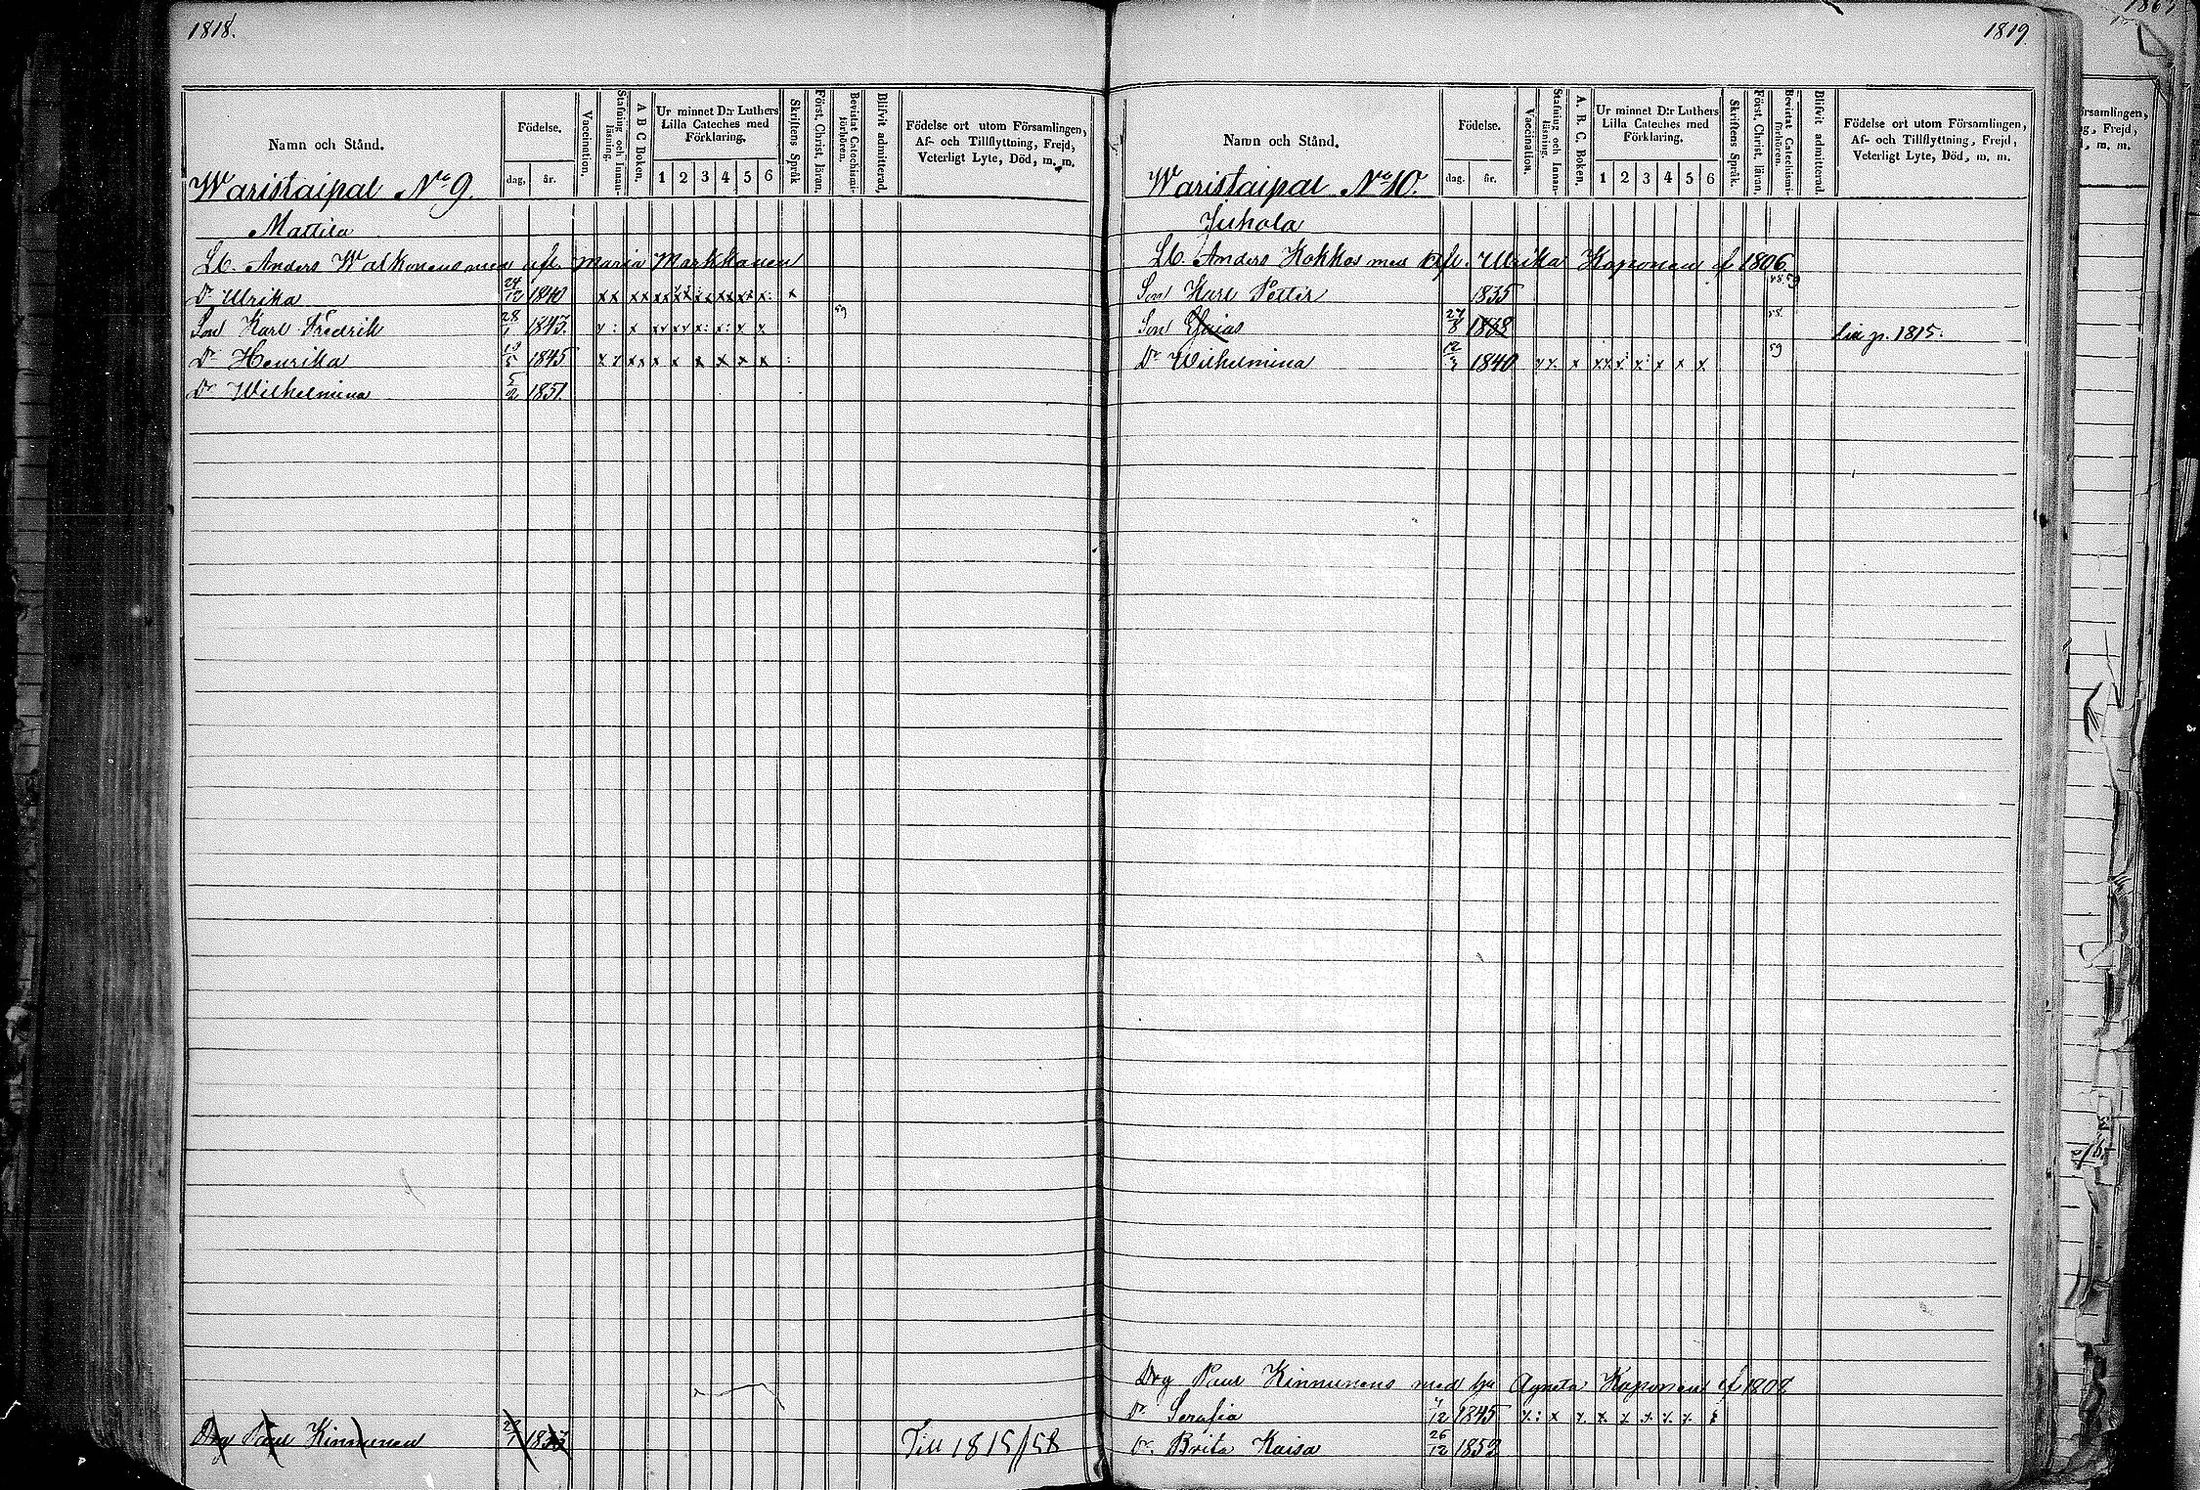 1818.
Namn och Stånd.
Födelse.
dag, år.
Vaccination.
Stafning och Innanläsning.
A B C Boken.
Ur minnet D:r Luthers Lilla Cateches med Förklaring.
1 2 3 4 5 6
Skriftens Språk
Först, Christ, läran,
Bevistat Catechismiförhören.
Blifvit admitterad,
Födelse ort utom Församlingen, Af- och Tillflyttning, Frejd, Veterligt Lyte, Död, m. m.
Waristaipal No 9.
Mattila
Lb. Anders Walkonens med afl. Maria Markkanen
Dr Ulrika 24/12 1840 x x x x x x x x x x x x x x x x x
Son Karl Fredrik 28/1 1843. x : x x x x x x : x : x x 59
Dr Henrika 19/5 1845 x x x x x x x x x x :
Dr Wilhelmina 5/2 1851
Drg Paul Kinnunen 1833 Till 1815/58
1819
Namn och Stånd.
Födelse.
dag. år.
Vaccination.
Stafning och Innanläsning.
A. B. C. Boken.
Ur minnet D:r Luthers Lilla Cateches med Förklaring.
1 2 3 4 5 6
Skriftens Språk.
Först, Christ, läran,
Bevistat Catechismiförhören.
Blifvit admitterad.
Födelse ort utom Församlingen, Af- och Tillflyttning, Frejd, Veterligt Lyte, Död, m. m.
Waristaipal No 10.
Juhola
Lb. Anders Kokkos med afl. Ulrika Kaponen f 1806
Son Karl Petter 1835 58. 59
Son Esaias 24/8 1838 58 Se p. 1815.
Dr Wilhelmina 1840 x x x x x x x x x x 59
Drg Paul Kinnunens med hu Agneta Kaponen f 1807
Dr Serafia 4/12 1845 x : x x x x x x x
Dr. Brita Kaisa 26/12 1852